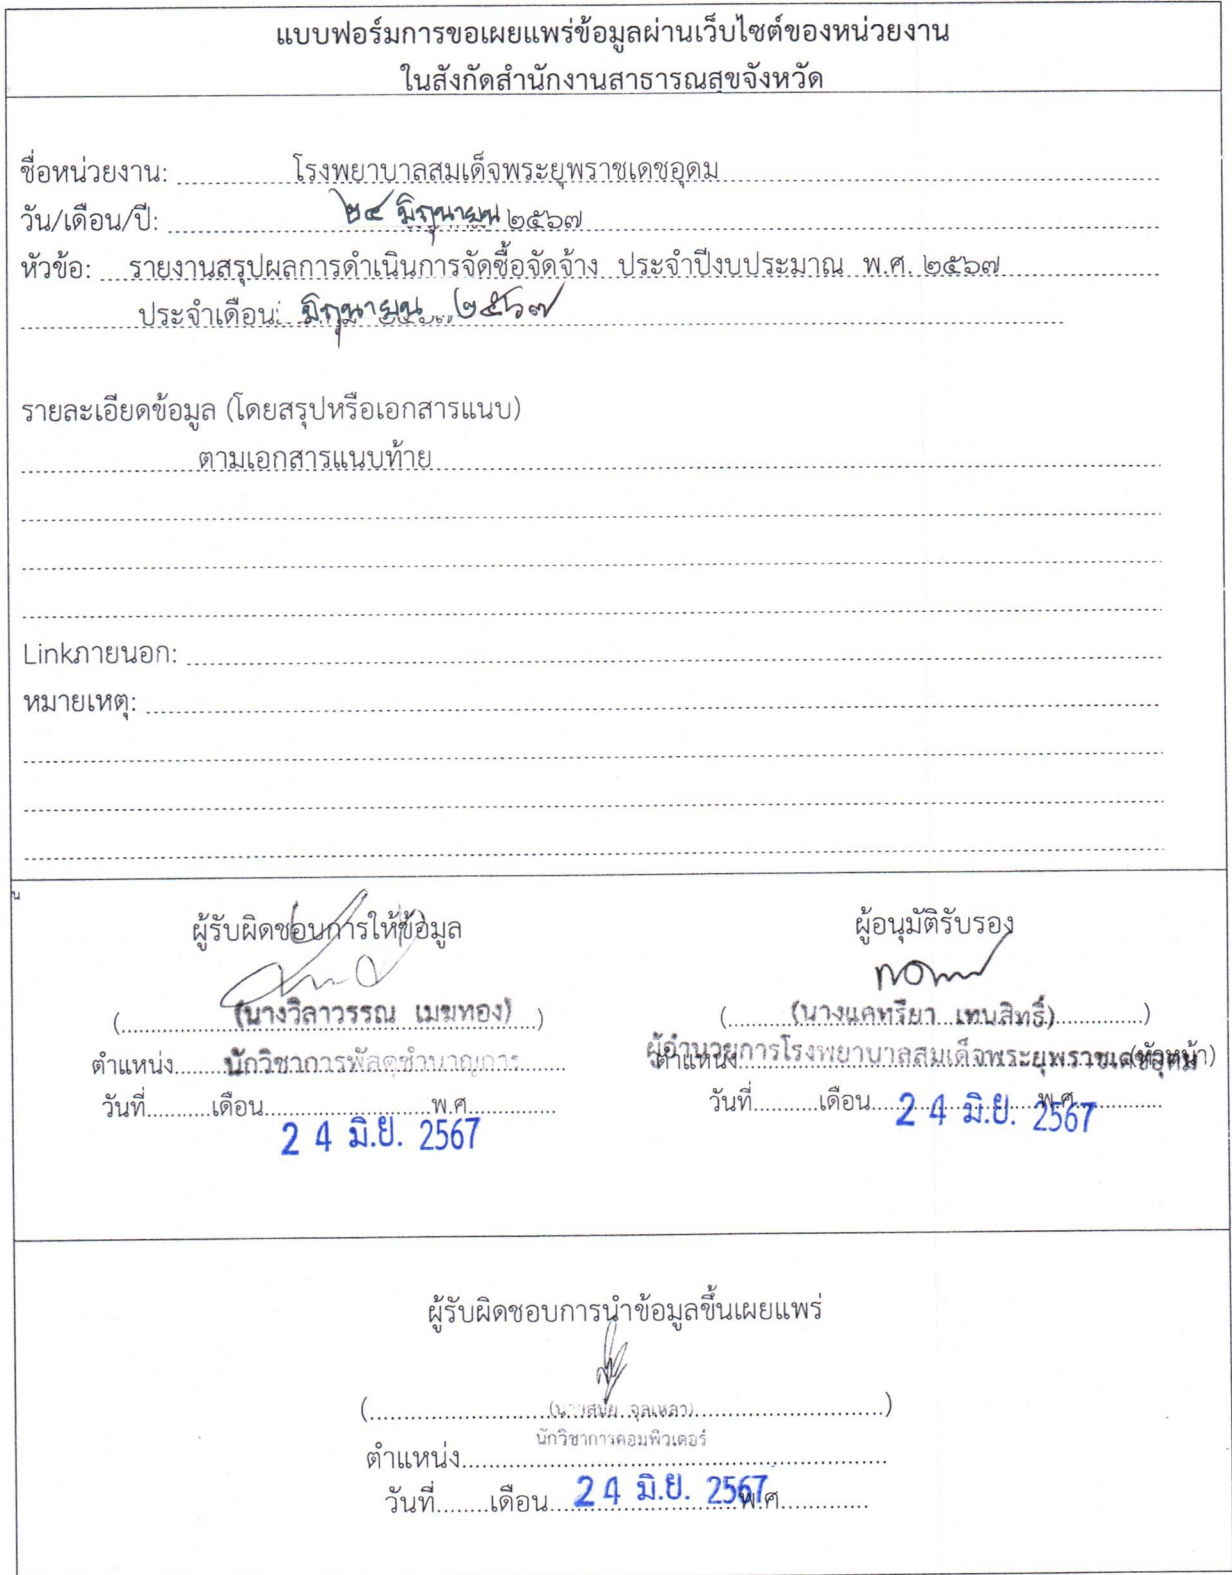 แบบฟอร์มการขอเผยแพร่ข้อมูลผ่านเว็บไซต์ของหน่วยงาน
ในสังกัดสำนักงานสาธารณสุขจังหวัด
ชื่อหน่วยงาน: โรงพยาบาลสมเด็จพระยุพราชเดชอุดม
วัน/เดือน/ปี: ๒๔ มิถุนายน ๒๕๖๗
หัวข้อ: รายงานสรุปผลการดำเนินการจัดซื้อจัดจ้าง ประจำปีงบประมาณ พ.ศ. ๒๕๖๗
ประจำเดือน: มิถุนายน ๒๕๖๗
รายละเอียดข้อมูล (โดยสรุปหรือเอกสารแนบ)
ตามเอกสารแนบท้าย
Linkภายนอก:
หมายเหตุ:
น
ผู้รับผิดชอบการให้ข้อมูล ผู้อนุมัติรับรอง
(นางวิลาวรรณ เมฆทอง) (นางแคทรียา เทนสิทธิ์)
ตำแหน่ง นักวิชาการพัสดุชำนาญการ ตำแหน่ง ผู้อำนวยการโรงพยาบาลสมเด็จพระยุพราชเดชอุดม (หัวหน้า)
วันที่ เดือน พ.ศ. วันที่ เดือน พ.ศ.
2 4 มิ.ย. 2567 2 4 มิ.ย. 2567
ผู้รับผิดชอบการนำข้อมูลขึ้นเผยแพร่
จุลเหลา)
นักวิชาการคอมพิวเตอร์
ตำแหน่ง
วันที่ เดือน 2 4 มิ.ย. 2567 พ.ศ.